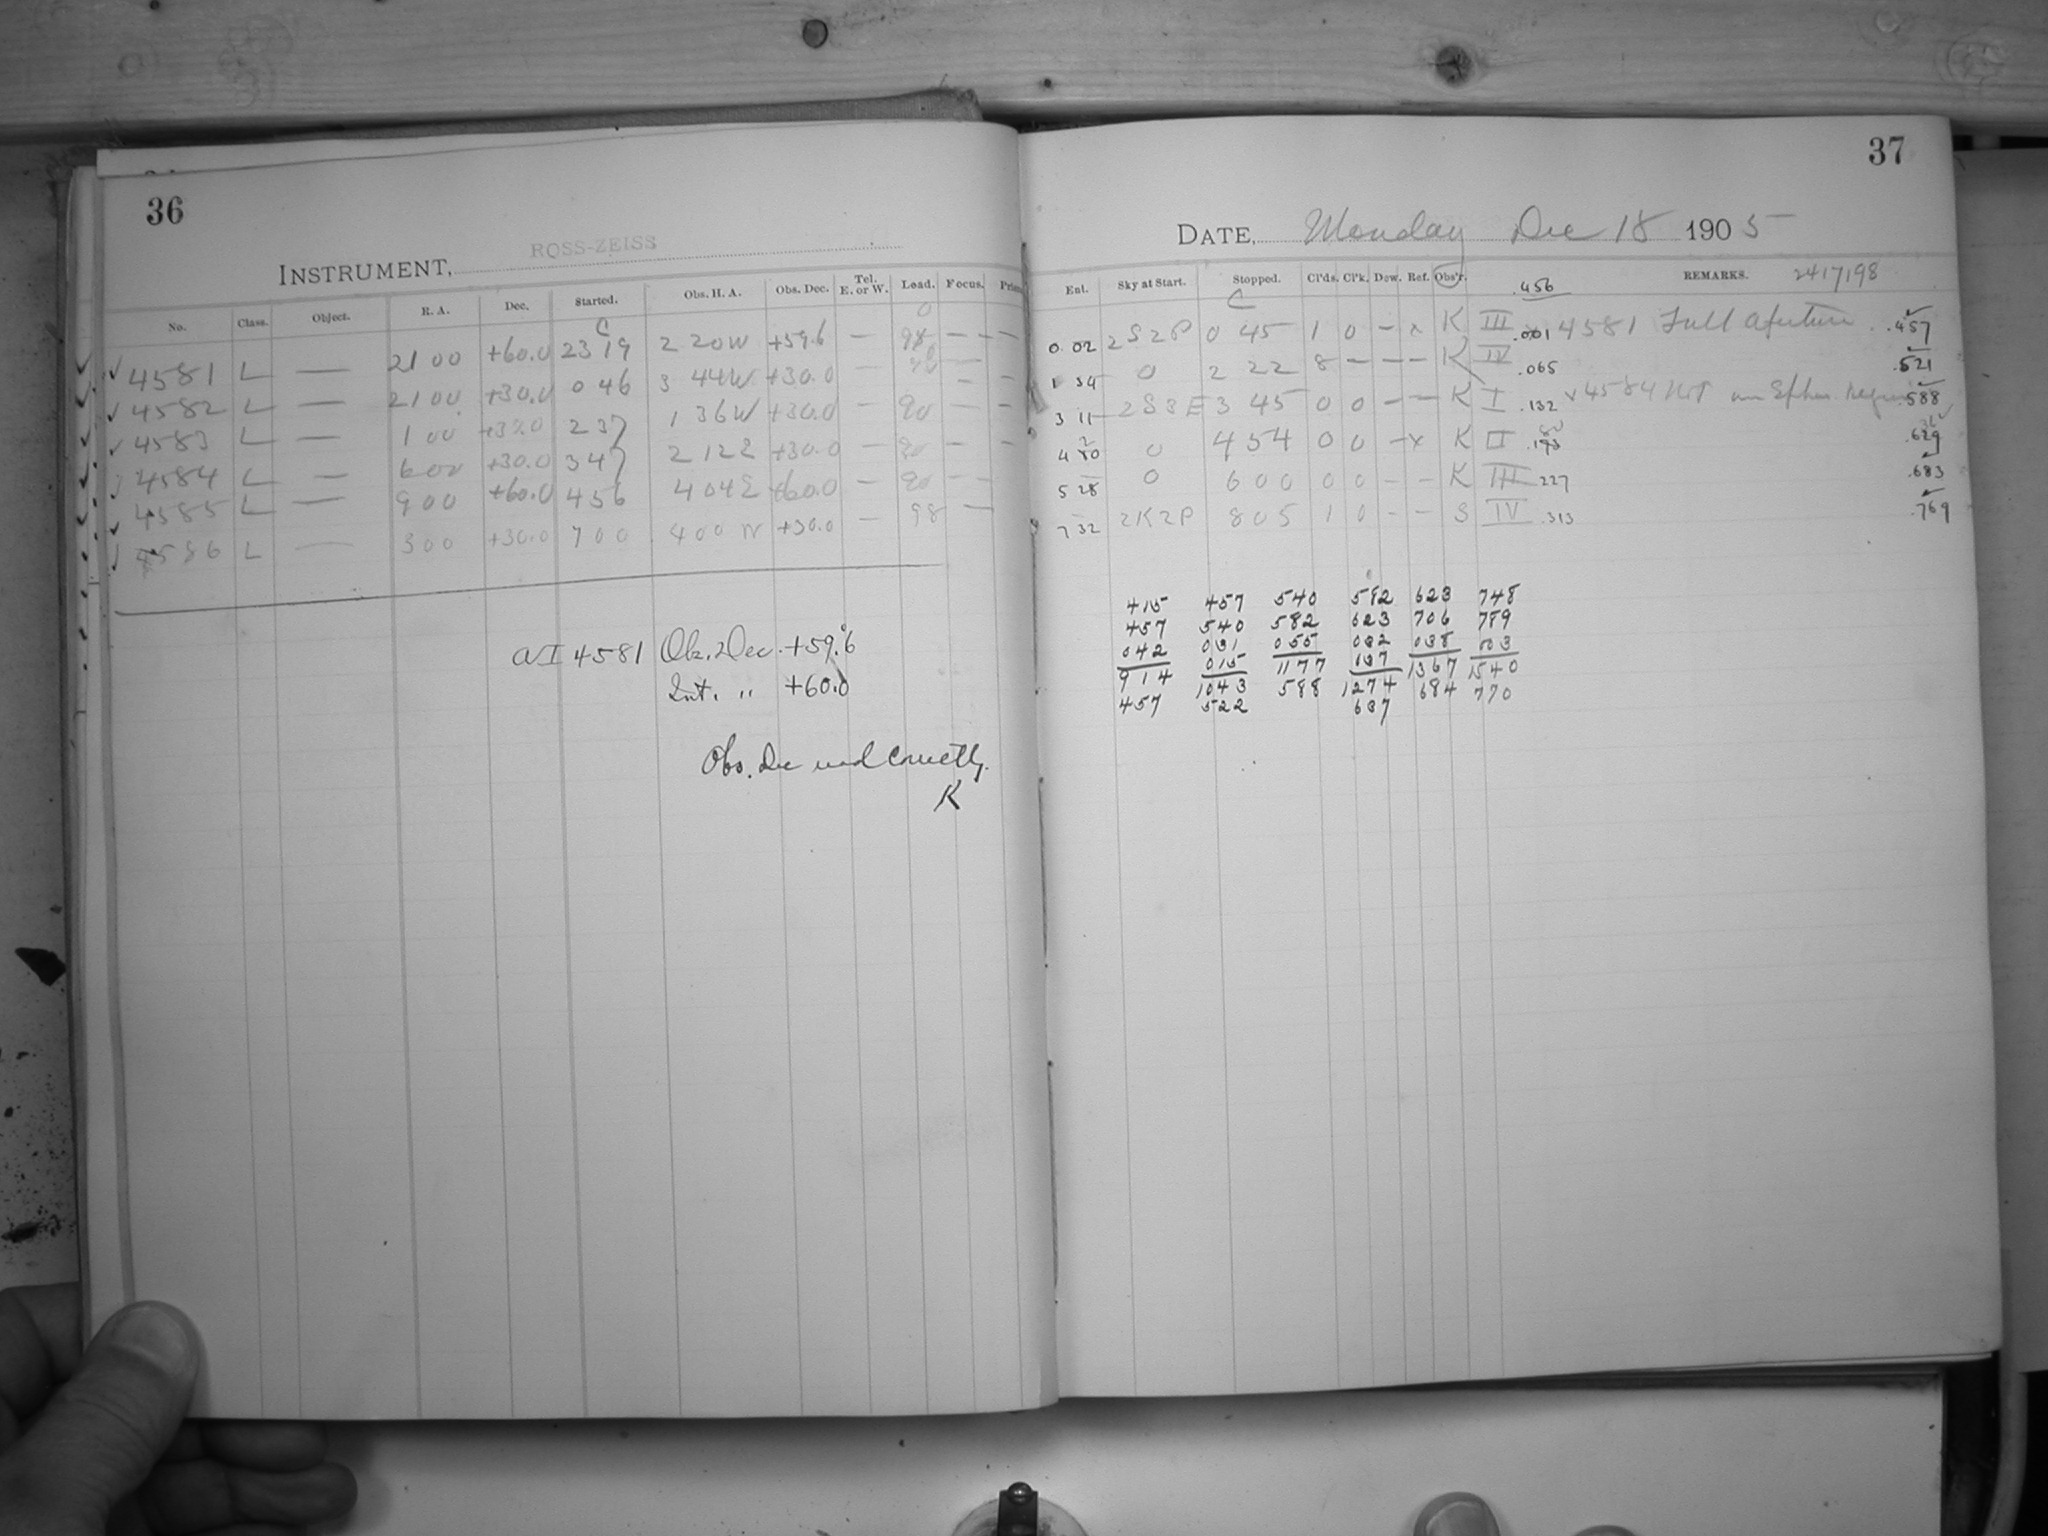 36
ROSS-ZEISS
INSTRUMENT,
No. Class. Object. R. A. Dec. Started. Obs. H. A. Obs. Dec. Tel. E. or W. Load. Focus.
4581 L — 21 00 +60.0 23 19 2 20 W +59.6 — 98 — —
4582 L — 21 00 +30.0 0 46 3 44 W +30.0 — — —
4583 L — 1 00 2 37 1 36 W +30.0 — 90 — —
4584 L — 6 00 +30.0 3 47 2 12 E +30.0 — 90 — —
4585 L — 9 00 +60.0 4 56 4 04 E +60.0 — 90 — —
4586 L — 3 00 +30.0 7 00 4 00 W +30.0 — 98 —
AI 4581 Obs. Dec. +59.°6
Int. " +60.0
Obs. Dec used correctly.
K
37
DATE, Monday Dec 18 1905
Ent. Sky at Start. Stopped. Cl'ds. Cl'k. Dew. Ref. Obs'r. .456 REMARKS. 2417198
0 02 2S2P 0 45 1 0 — x K III .001 4581 Full aperture .457
1 34 0 2 22 8 — — — K IV .065 .521
3 11 2S3E 3 45 0 0 — — K I .132 x 4584 Not on .588
0 4 54 0 0 — x K II .629
5 28 0 6 00 0 0 — — K III .227 .683
7 32 2K2P 8 05 1 0 — — S IV .313 .769
415 457 540 582 623 748
457 540 582 623 706 789
042 031 055 032 038 003
914 015 1177 137 1367 1540
457 1043 588 1274 684 770
522 637